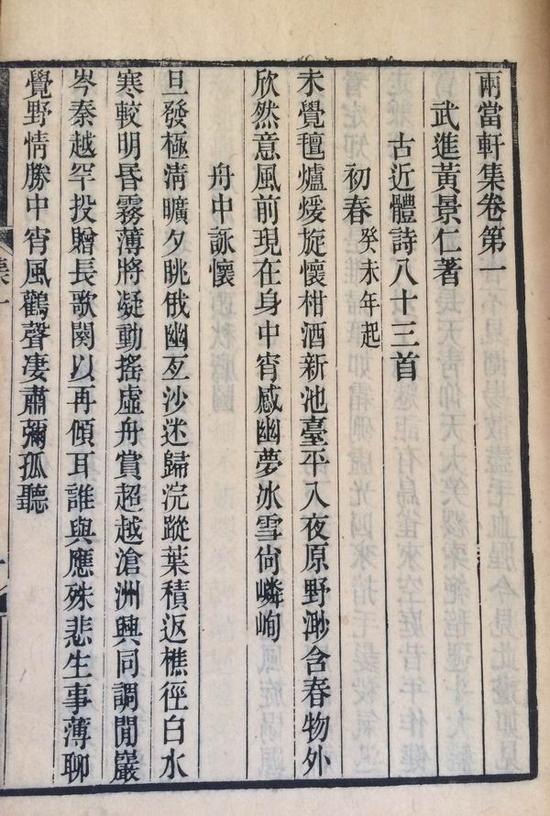 兩當軒集卷第一
武進黃景仁著
古近體詩八十三首
初春癸未年起
未覺氊爐煖旋懷柑酒新池臺平入夜原野渺含春物外
欣然意風前現在身中宵感幽夢冰雪尙嶙峋
舟中詠懷
旦發極淸曠夕眺俄幽亙沙迷歸浣蹤葉積返樵徑白水
寒較明昏霧薄將凝動搖虛舟賞超越滄洲興同調閒巖
岑秦越罕投贈長歌闋以再傾耳誰與應殊悲生事薄聊
覺野情勝中宵風鶴聲凄肅彌孤聽
集一